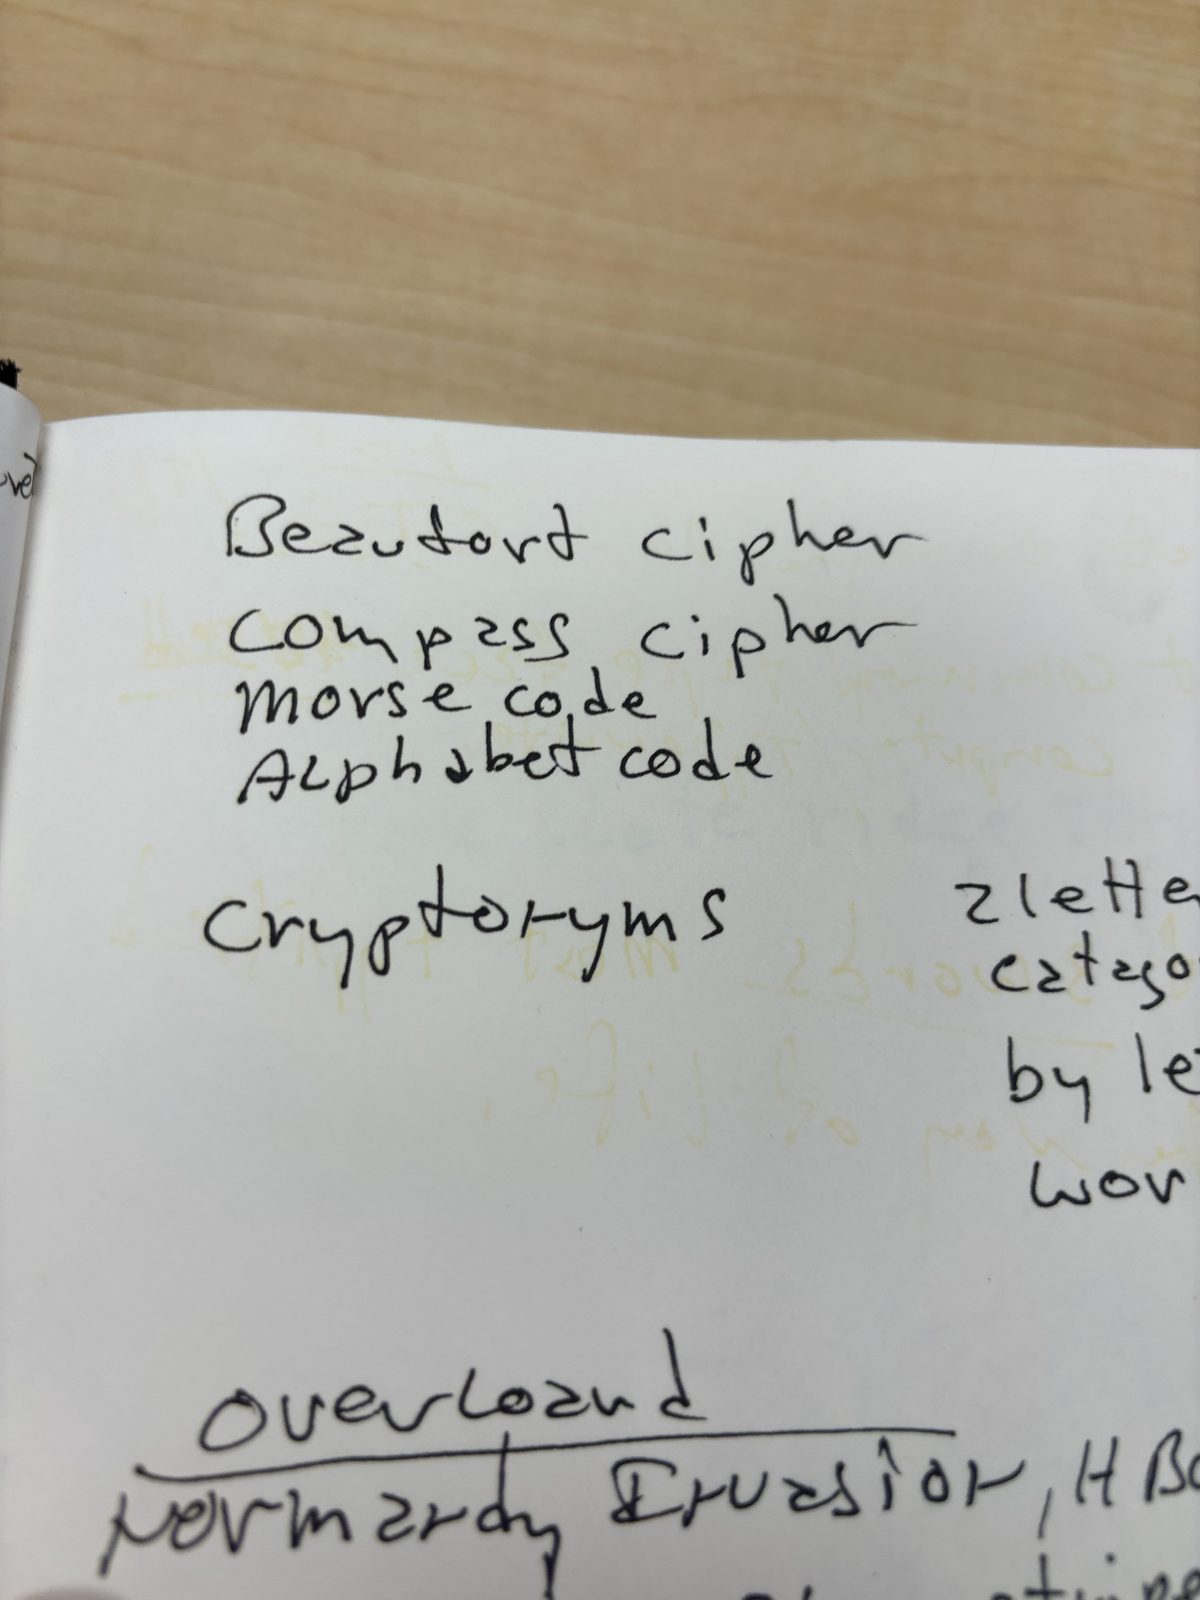 Beaufort cipher
Compass cipher
Morse code
Alphabet code
Cryptonyms
2 lette
catago
by le
wor
overloand
Normandy Invasion, H Bo